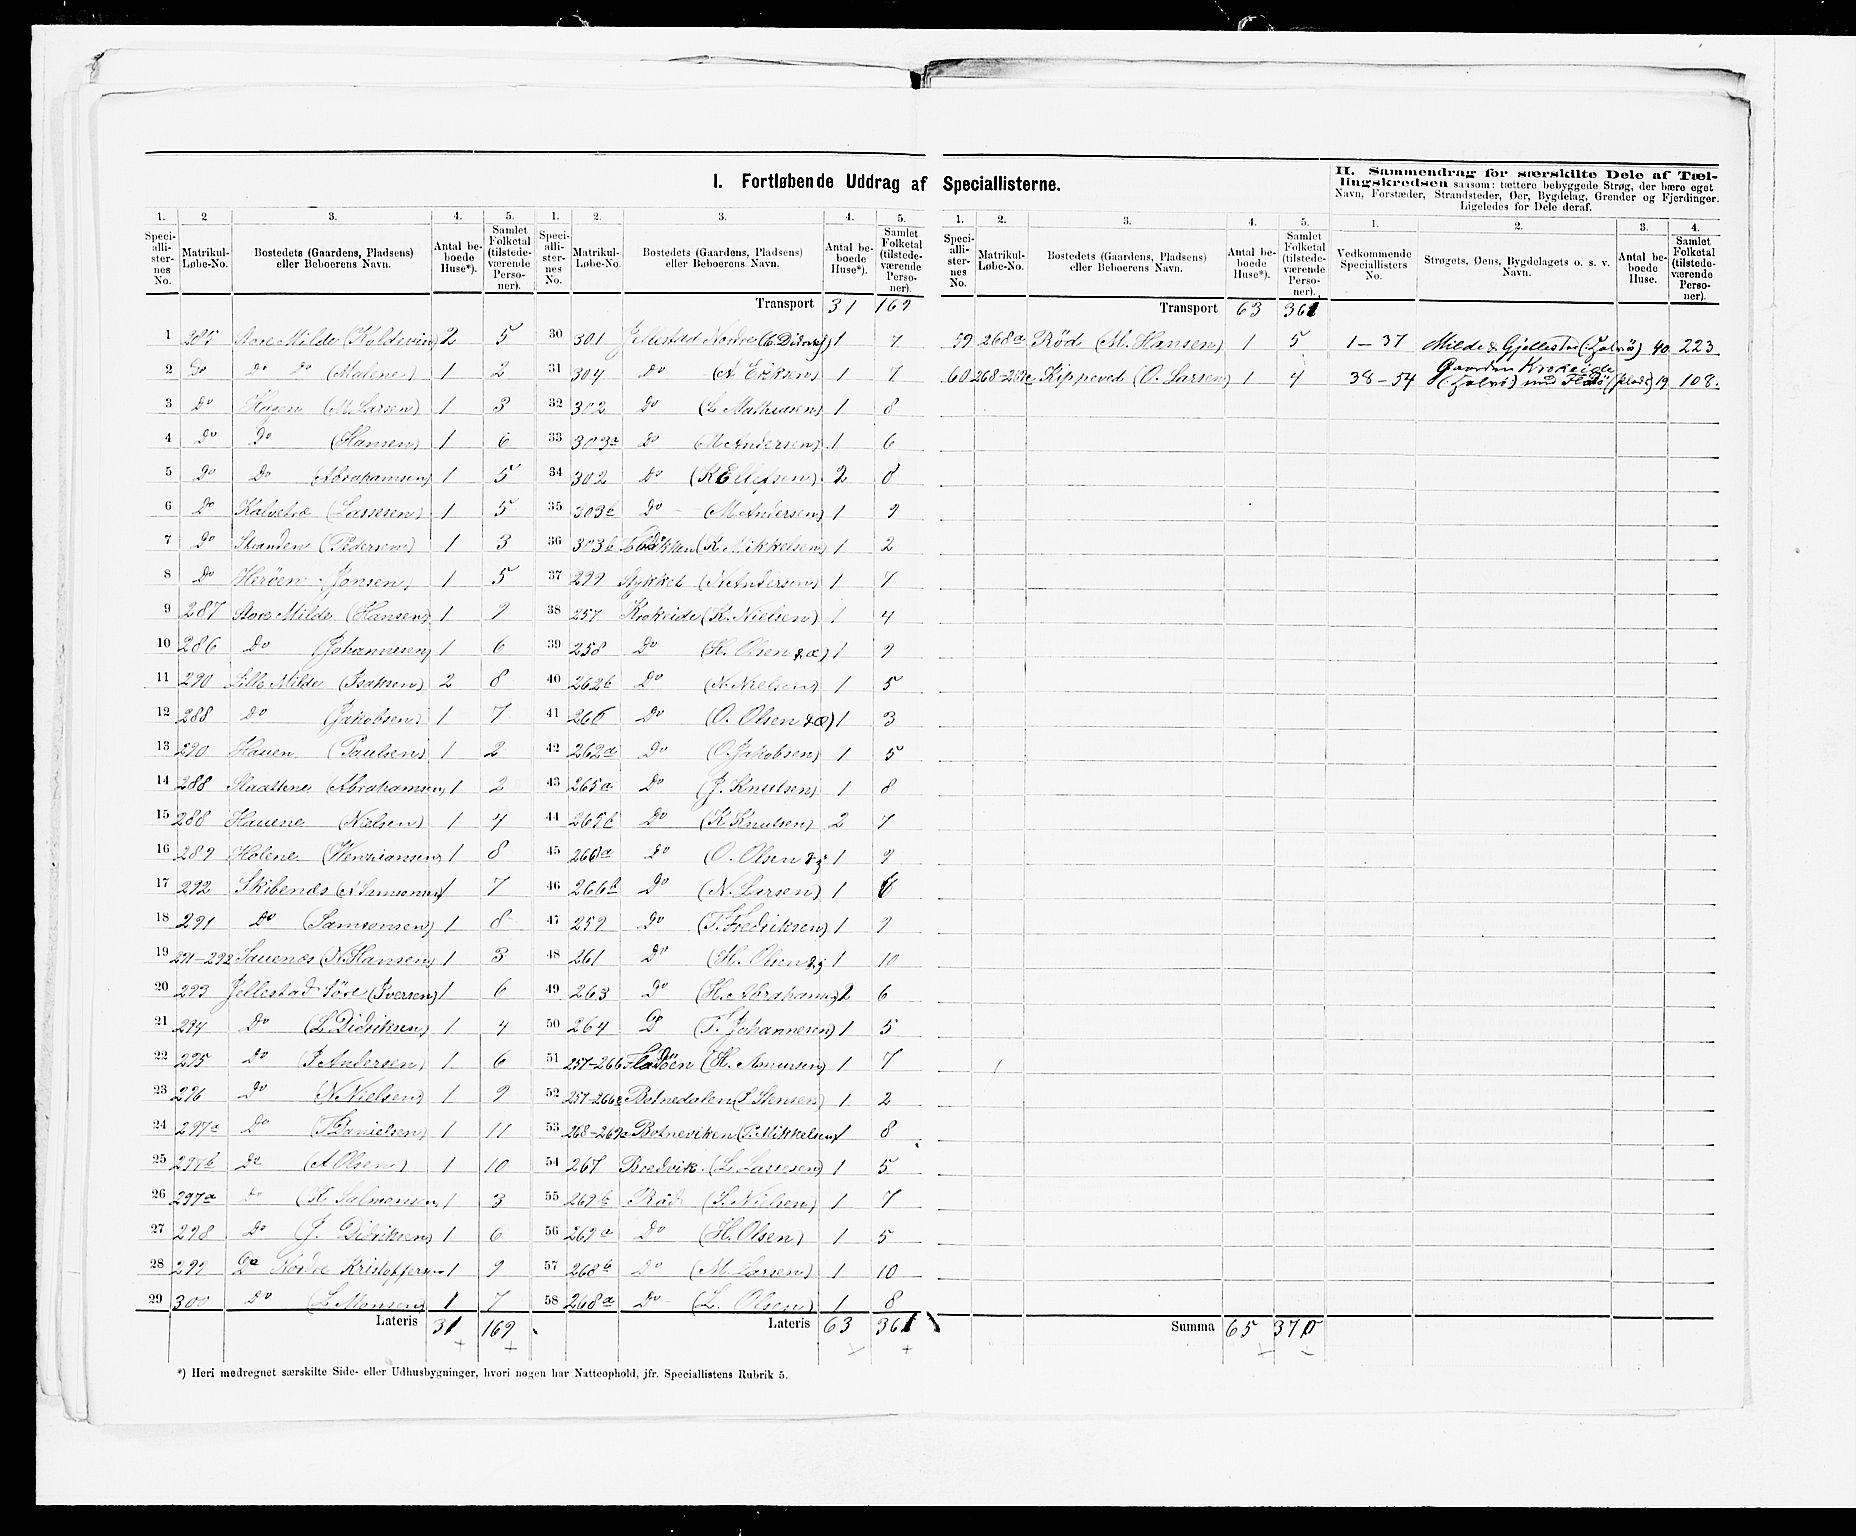 I. Fortløbende Uddrag af Speciallisterne.
1. 2 3. 4. 5.
Speciallisternes No. Matrikul-Løbe-No. Bostedets (Gaardens, Pladsens) eller Beboerens Navn. Antal beboede Huse*). Samlet Folketal (tilstedeværende Personer).
1 285 Store Milde (Koldevin) 2 5
2 Do Do Do (Malene) 1 2
3 Do Hagen (M. Larsen) 1 3
4 Do Do (Hansen) 1 6
5 Do Do (Abrahamsen) 1 5
6 Do Kalvetræ (Lassesen) 1 5
7 Do Stranden (Pedersen) 1 3
8 Do Herøen (Jonsen) 1 5
9 287 Store Milde (Hansen) 1 9
10 286 Do (Johannesen) 1 6
11 290 Lille Milde (Isaksen) 2 8
12 288 Do (Jakobsen) 1 7
13 290 Hauen (Paulsen) 1 2
14 288 Slaattene (Abrahamsen) 1 2
15 288 Hauene (Nielsen) 1 4
16 289 Holene (Henriansen) 1 8
17 292 Skibenes (A Samsonsen) 1 7
18 291 Do (Samsonsen) 1 8
19 291-292 Sauenes (N. Hansen) 1 3
20 293 Jellestad Søre (Iversen) 1 6
21 294 Do (L. Didriksen) 1 4
22 295 Do (J Andersen) 1 6
23 296 Do (N. Nielsen) 1 9
24 297a Do (T Danielsen) 1 11
25 297b Do (A Olsen) 1 10
26 297a Do (H Salmonsen) 1 3
27 298 Do (J. Didriksen) 1 6
28 299 Do Nordre Kristoffersen 1 9
29 300 Do (L. Monsen) 1 7
Lateris 31 169
1. 2. 3. 4. 5.
Speciallisternes No. Matrikul-Løbe-No. Bostedets (Gaardens, Pladsens) eller Beboerens Navn. Antal beboede Huse*). Samlet Folketal (tilstedeværende Personer).
Transport 31 169
30 301 Jellestad Nordre 1 7
31 304 Do (A Eriksen) 1 7
32 302 Do (L Mathiasen) 1 8
33 303a Do (M Andersen) 1 6
34 302 Do (K Ellefsen) 2 8
35 303b Do (M Andersen) 1 9
36 303b (K Mikkelsen) 1 2
37 299 Stykket (N Andersen) 1 7
38 257 Krokeide (K. Nielsen) 1 4
39 258 Do (H. Olsen d.æ) 1 9
40 262b Do (N. Nielsen) 1 5
41 266 Do (O. Olsen d.æ) 1 3
42 262a Do (O. Jakobsen) 1 5
43 265a Do (J. Knutsen) 1 8
44 265b Do (K Knutsen) 2 7
45 266a Do (O. Olsen d.y) 1 9
46 266b Do (N. Larsen) 1 6
47 259 Do (T. Fredriksen) 1 9
48 261 Do (H. Olsen d.y) 1 10
49 263 Do (H. Abrahams) 2 6
50 264 Do (T. Johannesen) 1 5
51 257-266 Fladøen (H. Amunsen) 1 7
52 257-266 Botnedalen (S Stensen) 1 2
53 268-269a Botneviken (P. Mikkelsen) 1 8
54 267 Bredvik (L. Lassesen) 1 5
55 269b Rød (S. Nielsen) 1 7
56 269a Do (H. Olsen) 1 5
57 268b Do (M. Larsen) 1 10
58 268a Do (L. Olsen) 1 8
Lateris 63 361
*) Heri medregnet særskilte Side- eller Udhusbygninger, hvori nogen har Natteophold, jfr. Speciallistens Rubrik 5.
1. 2. 3. 4. 5.
Speciallisternes No. Matrikul-Løbe-No. Bostedets (Gaardens, Pladsens) eller Beboerens Navn. Antal beboede Huse*). Samlet Folketal (tilstedeværende Personer).
Transport 63 361
59 268a Rød (M. Hansen) 1 5
60 268-269 Kippeved (O. Larsen) 1 4
Summa 65 370
II. Sammendrag for særskilte Dele af Tællingskredsen saasom: tættere bebyggede Strøg, der bære eget
Navn, Forstæder, Strandsteder, Øer, Bygdelag, Grender og Fjerdinger.
Ligeledes for Dele deraf.
1. 2. 3. 4.
Vedkommende Speciallisters No. Strøgets, Øens, Bygdelagets o. s. v. Navn. Antal beboede Huse. Samlet Folketal (tilstedeværende Personer).
1-37 Milde & Gjellestad 40 223
Gaarden Krokeide
38-54 med Fladø 19 108.